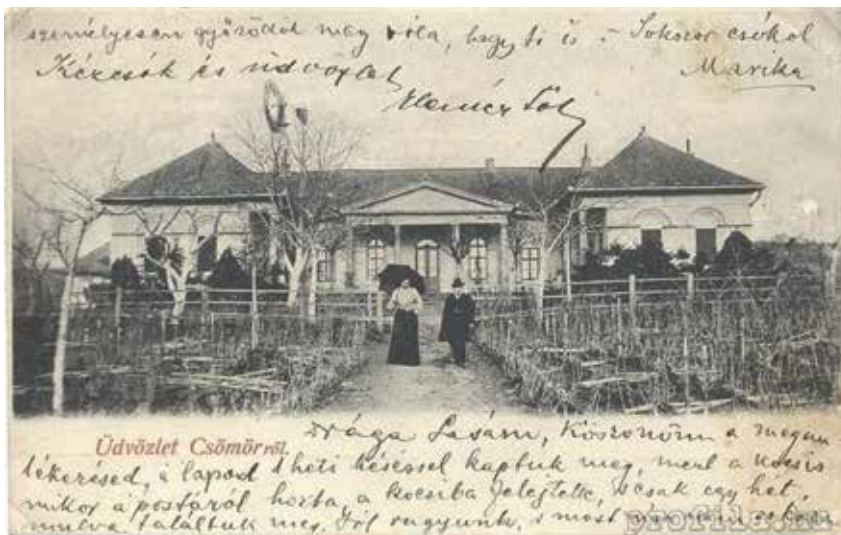 személyesen győződöl meg róla, hogy ti is - Sokszor csókol
Kézcsók és üdvözlet Marika
Üdvözlet Csömörről.
Drága Lasám, köszönöm a megem
lékezésed, a lapod 1 heti késéssel kaptuk meg, mert a kocsis
mikor a postáról hozta, a kocsiba felejtette, s csak egy hét,
mulva találtuk meg. Jól vagyunk, s most már nem
profila.hu